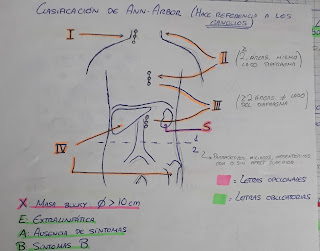 CLASIFICACIÓN DE ANN-ARBOR (HACE REFERENCIA A LOS
GANGLIOS)
I
II
(≥ 2 ÁREAS MISMO
LADO DIAFRAGMA
III
(≥2 ÁREAS ≠ LADO
DEL DIAFRAGMA
S
IV
1
2
X MASA BULKY Ø > 10 cm
E. EXTRALINFÁTICA
A: AUSENCIA DE SÍNTOMAS
B SÍNTOMAS B
= LETRAS OPCIONALES
= LETRAS OBLIGATORIAS